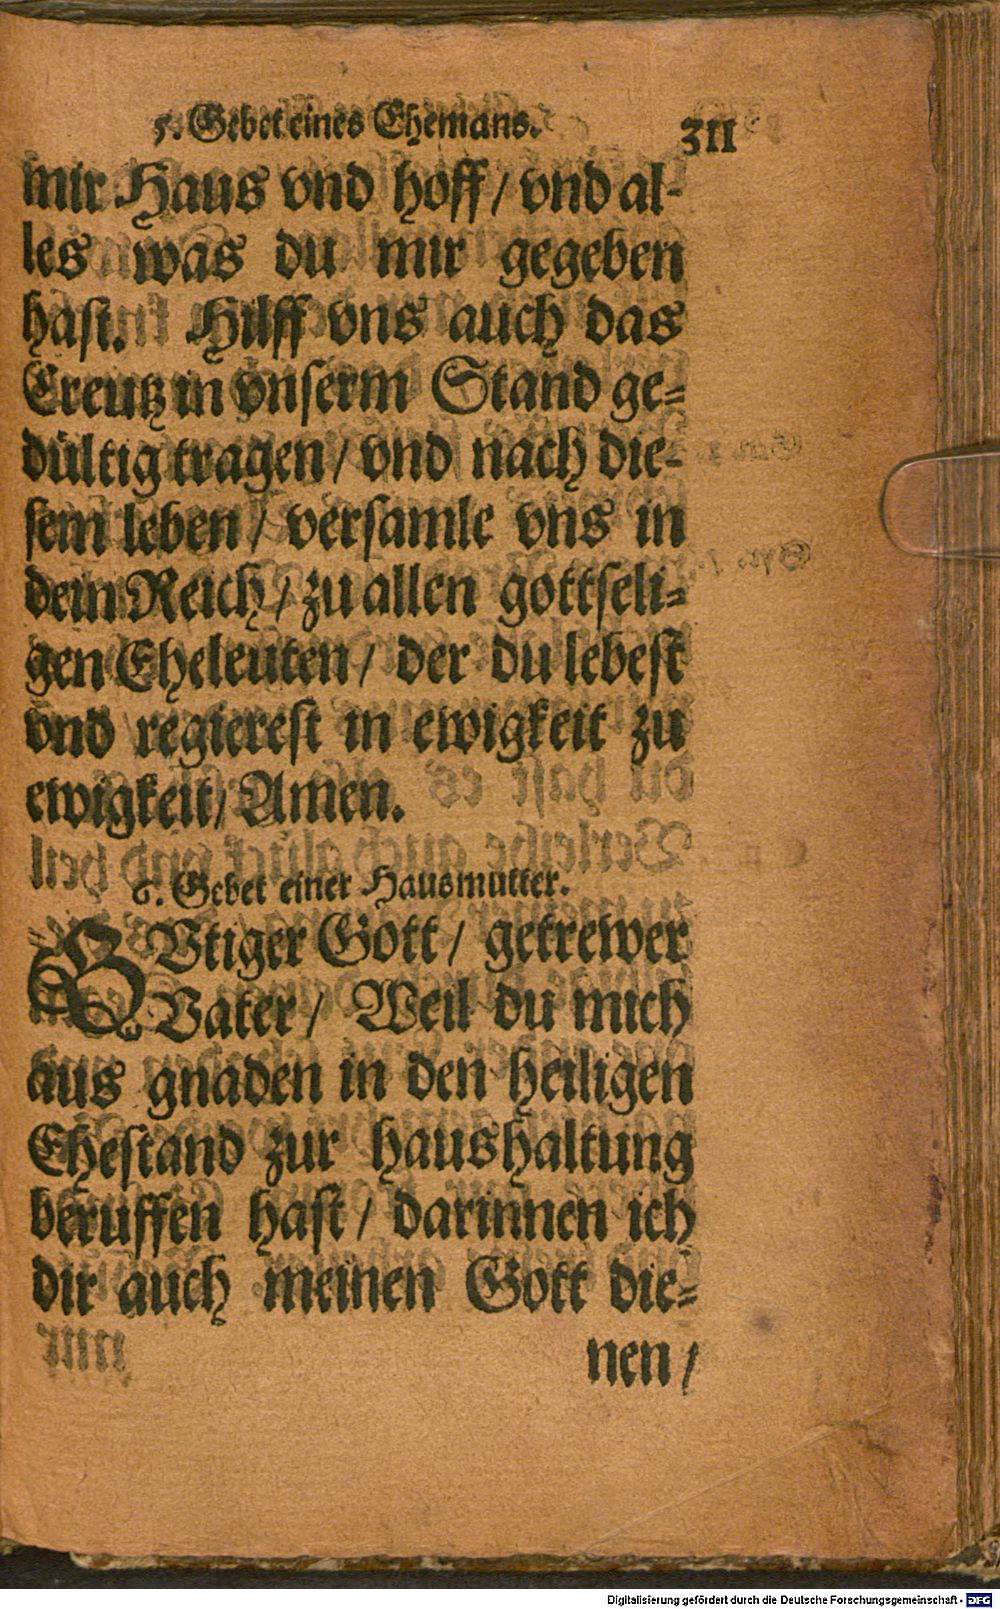 5. Gebet eines Ehemans. 311
mir Haus vnd hoff / vnd al-
les was du mir gegeben
hast. Hilff vns auch das
Creutz in vnserm Stand ge-
dültig tragen / vnd nach die-
sem leben / versamle vns in
dein Reich / zu allen gottseli-
gen Eheleuten / der du lebest
vnd regierest in ewigkeit zu
ewigkeit / Amen.
6. Gebet einer Hausmutter.
GVtiger Gott / getrewer
Vater / Weil du mich
aus gnaden in den heiligen
Ehestand zur haushaltung
beruffen hast / darinnen ich
dir auch meinen Gott die-
nen /
Digitalisierung gefördert durch die Deutsche Forschungsgemeinschaft - DFG